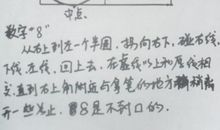 中点.
数字"8"
从右上到左一个半圆,拐向右下,碰右线,
下线,左线,回上去,在虚线以上和厚线相
交,直到右上角附近与拿笔的地方稍稍离
开一些为止,8是不到口的.